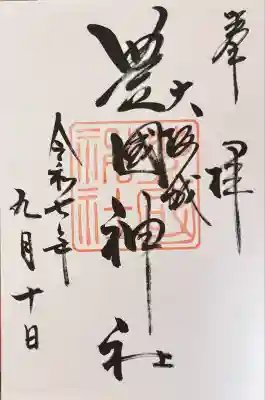 奉拝
大阪城
豊國神社
令和七年
九月十日